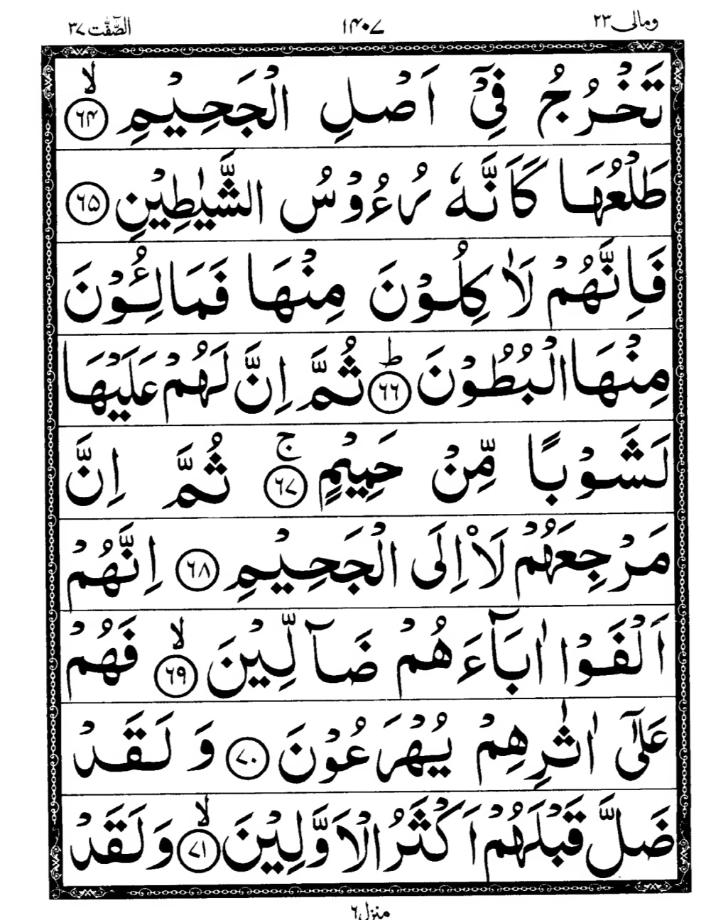 الصّٰٓفّٰت ٣٧ ١٤٠٧ ومالی ٢٣
تَخْرُجُ فِیْۤ اَصْلِ الْجَحِیْمِ ۙ﴿۶۴﴾
طَلْعُهَا كَاَنَّهٗ رُءُوْسُ الشَّیٰطِیْنِ ﴿۶۵﴾
فَاِنَّهُمْ لَاٰكِلُوْنَ مِنْهَا فَمَالِـُٔوْنَ
مِنْهَا الْبُطُوْنَ ؕ﴿۶۶﴾ ثُمَّ اِنَّ لَهُمْ عَلَیْهَا
لَشَوْبًا مِّنْ حَمِیْمٍ ۚ﴿۶۷﴾ ثُمَّ اِنَّ
مَرْجِعَهُمْ لَاۡاِلَی الْجَحِیْمِ ﴿۶۸﴾ اِنَّهُمْ
اَلْفَوْا اٰبَآءَهُمْ ضَآلِّیْنَ ۙ﴿۶۹﴾ فَهُمْ
عَلٰۤی اٰثٰرِهِمْ یُهْرَعُوْنَ ﴿۷۰﴾ وَ لَقَدْ
ضَلَّ قَبْلَهُمْ اَكْثَرُ الْاَوَّلِیْنَ ۙ﴿۷۱﴾ وَ لَقَدْ
منزل ٦